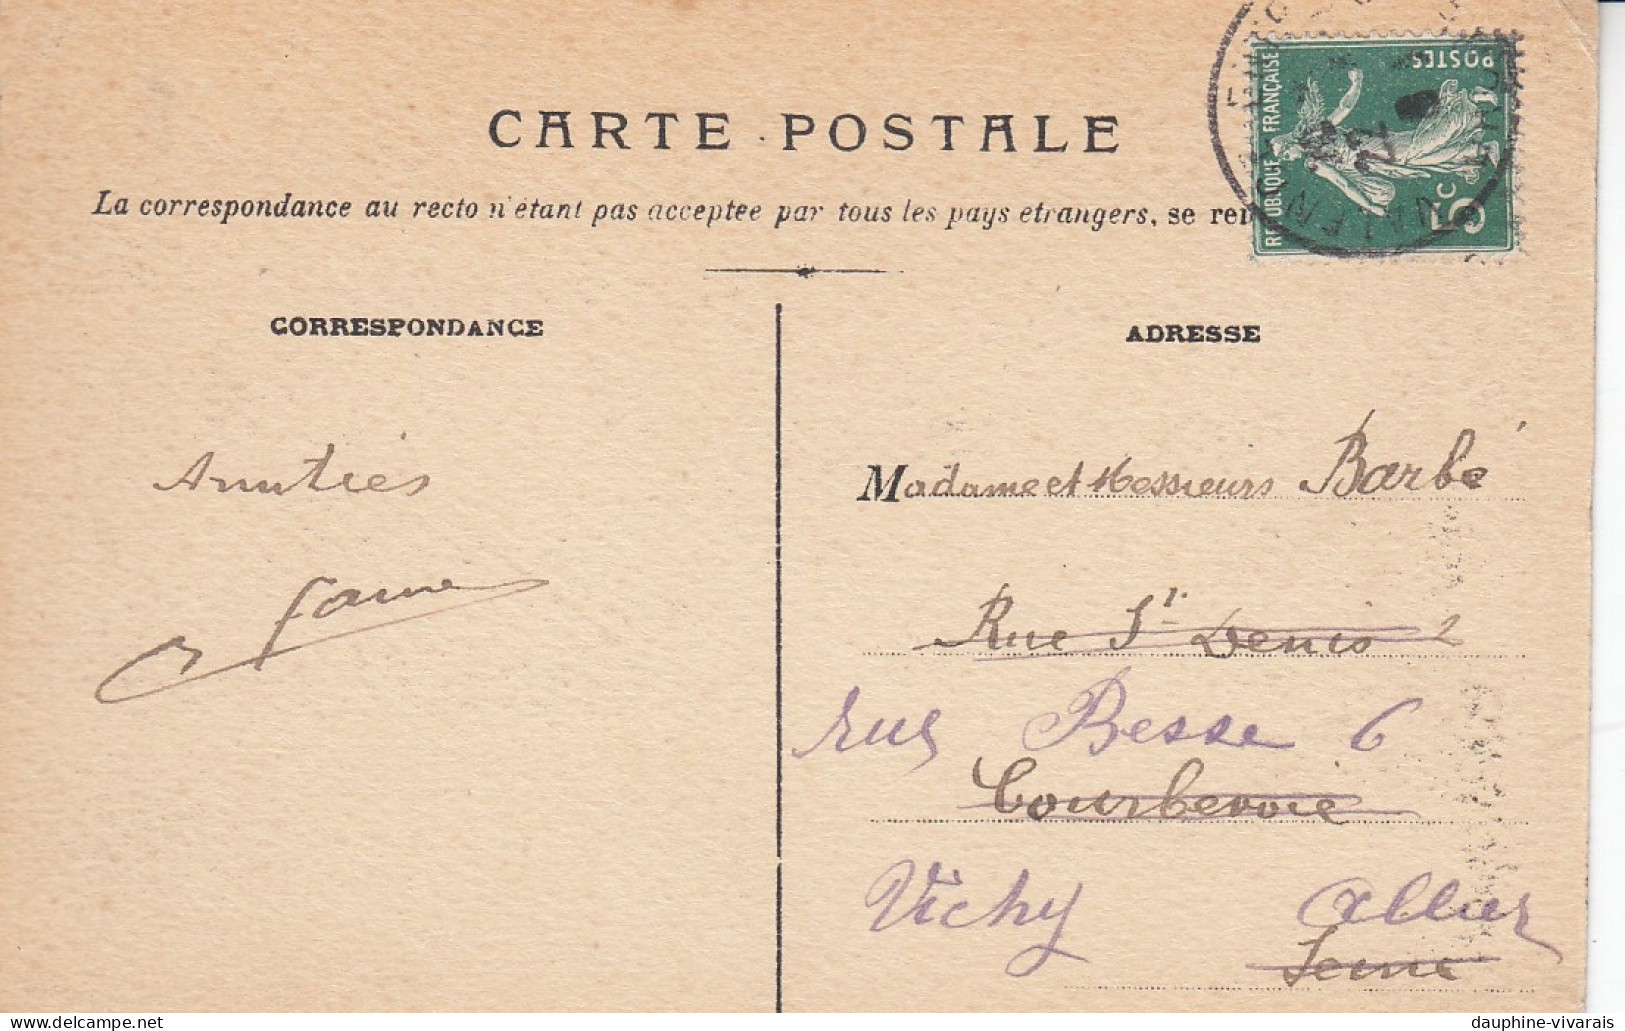 CARTE POSTALE
La correspondance au recto n'étant pas acceptée par tous les pays étrangers, se ren
REPUBLIQUE FRANÇAISE
POSTES
5c
CORRESPONDANCE
ADRESSE
Amitiés
Madame et Messieurs Barbé
Rue St Denis 2
rue Besse 6
Courbevoie
Vichy Allier
Seine
dauphine-vivarais